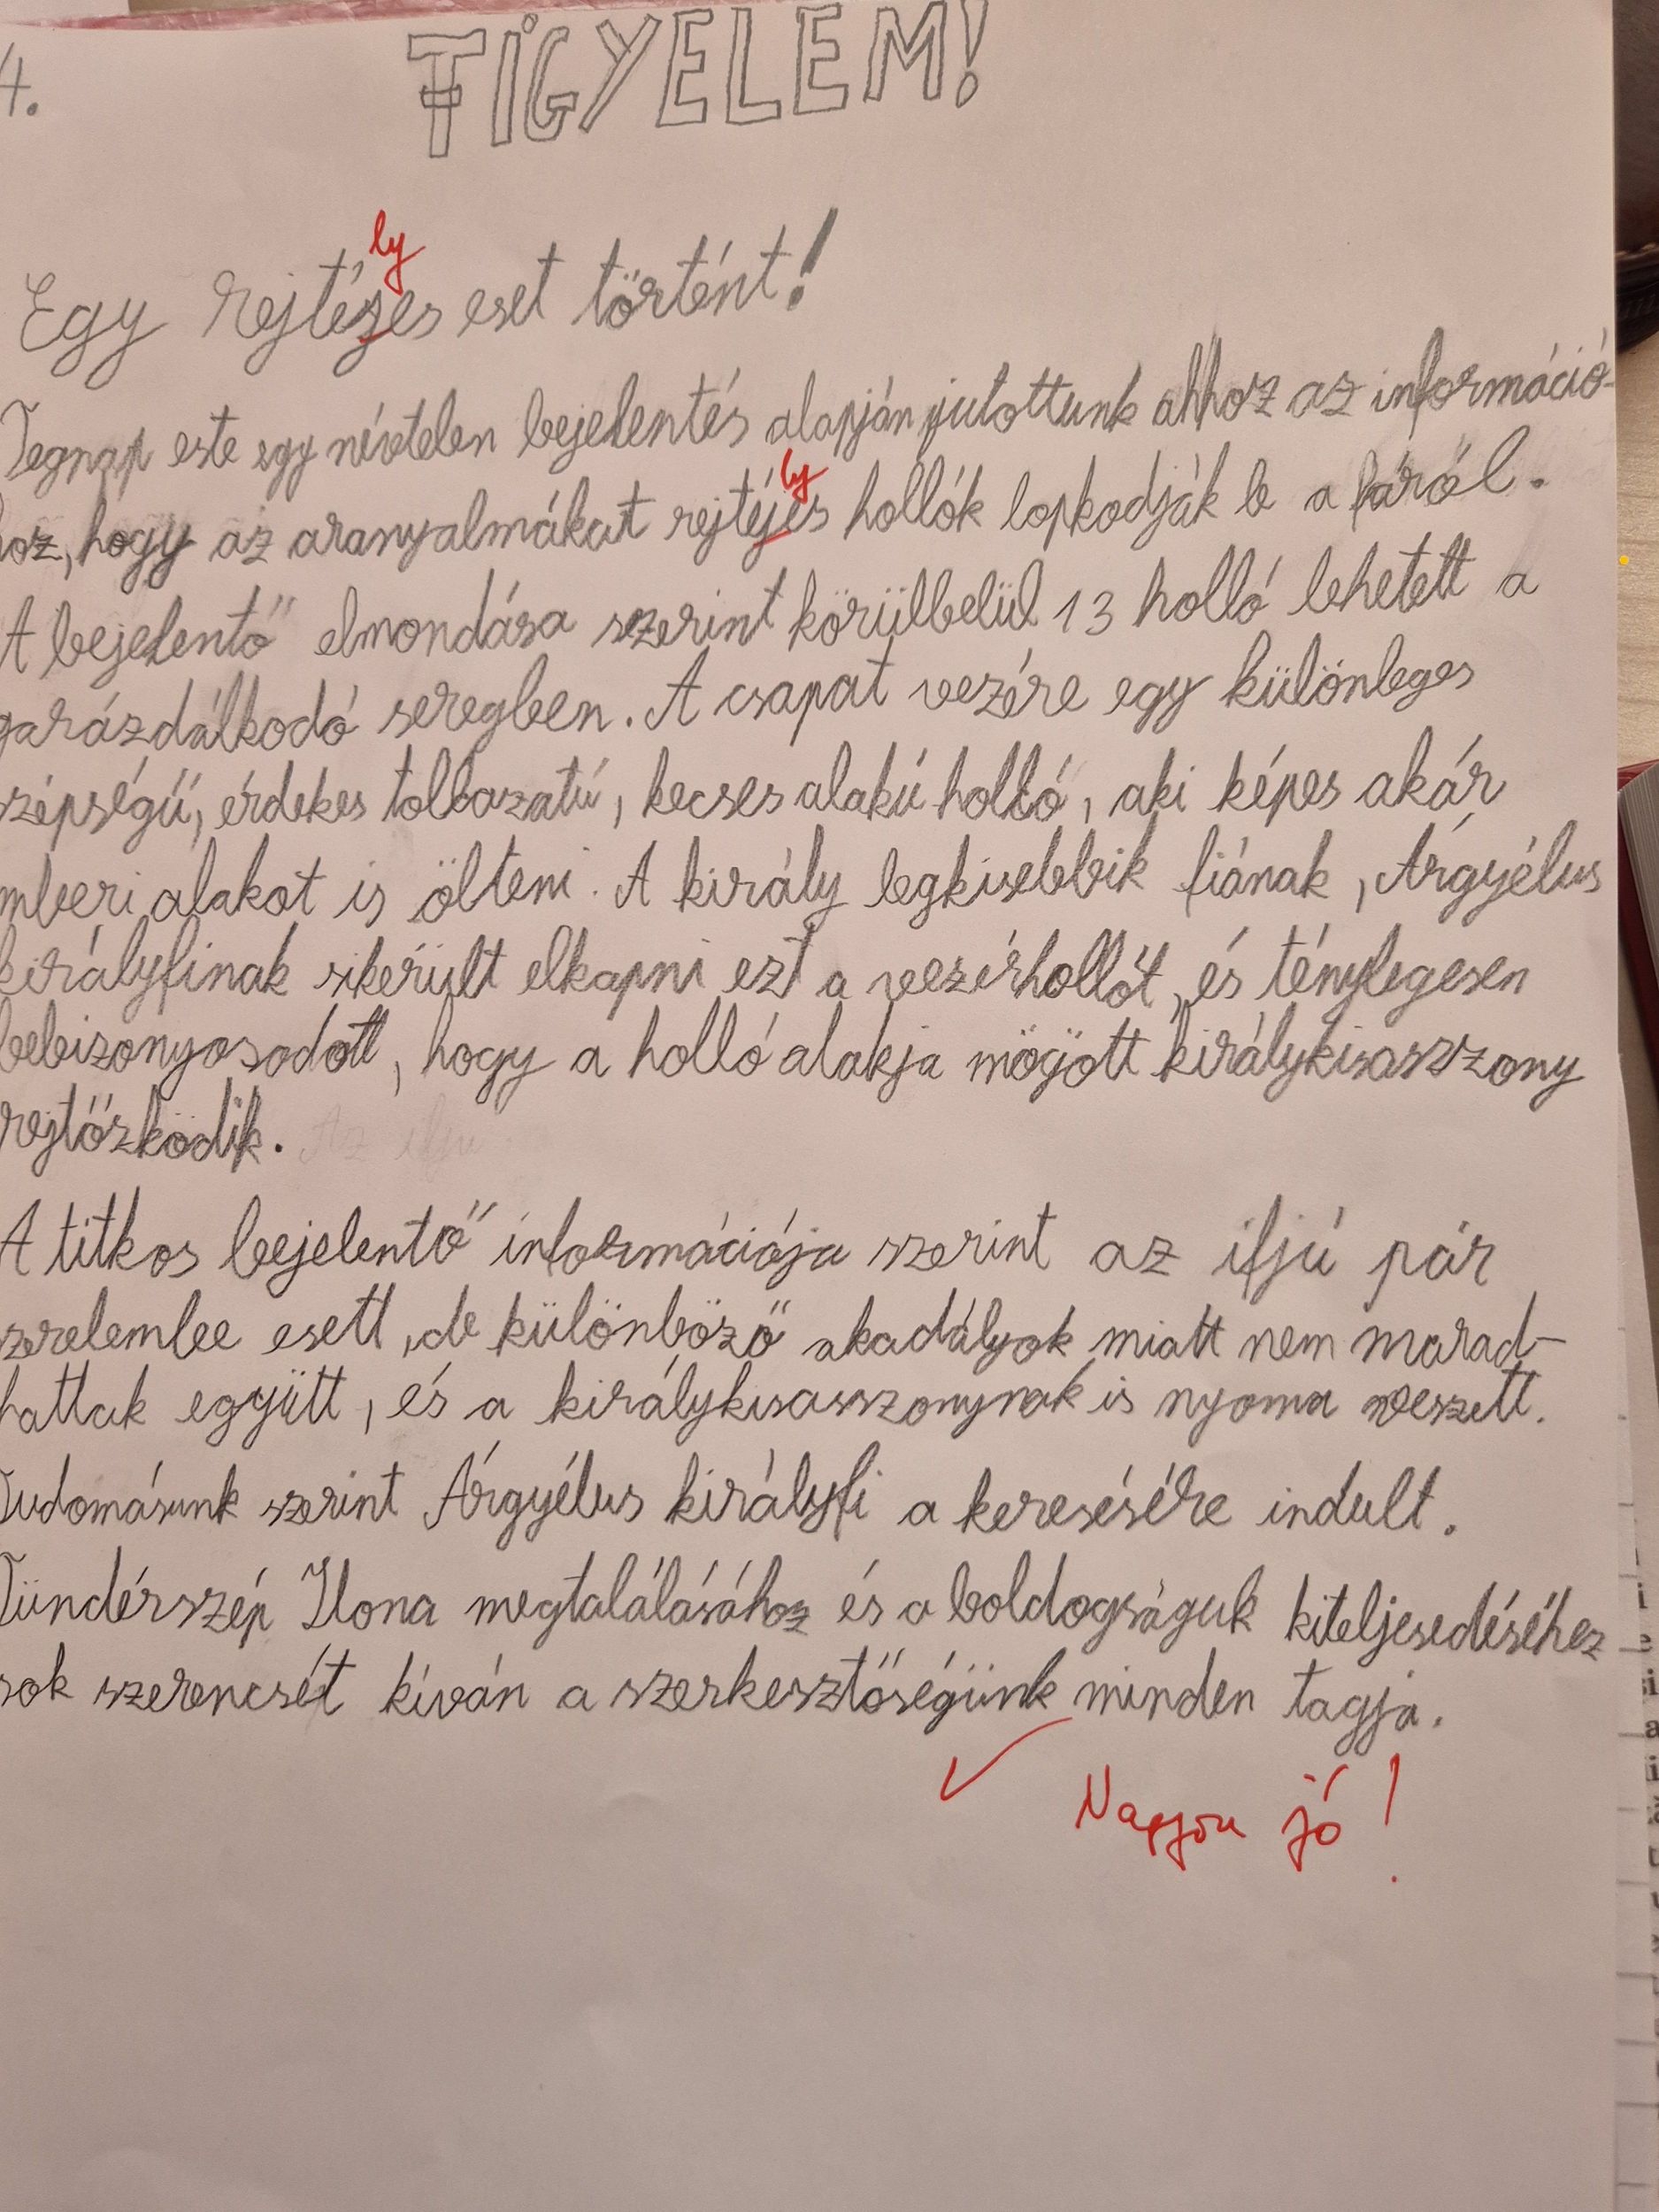 4.
FIGYELEM!
ly
Egy rejtéjes eset történt!
Tegnap este egy névtelen bejelentés alapján jutottunk ahhoz az információ-
hoz, hogy az aranyalmákat rejtéjes hollók lopkodják le a fáról.
ly
A bejelentő elmondása szerint körülbelül 13 holló lehetett a
garázdálkodó seregben. A csapat vezére egy különleges
szépségű, érdekes tollazatú, kecses alakú holló, aki képes akár
mberi alakot is ölteni. A király legkisebbik fiának, Árgyélus
királyfinak sikerült elkapni ezt a vezérhollót, és ténylegesen
bebizonyosodott, hogy a holló alakja mögött királykisasszony
rejtőzködik. Az ifju
A titkos bejelentő információja szerint az ifjú pár
zerelembe esett, de különböző akadályok miatt nem marad-
hattak együtt, és a királykisasszonynak is nyoma veszett.
Tudomásunk szerint Árgyélus királyfi a keresésére indult.
Tündérszép Ilona megtalálásához és a boldogságuk kiteljesedéséhez
sok szerencsét kíván a szerkesztőségünk minden tagja.
Nagyon jó!